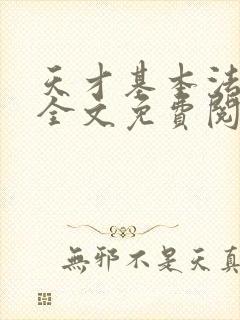 天才基本法
全文免費閱
無邪不是天真